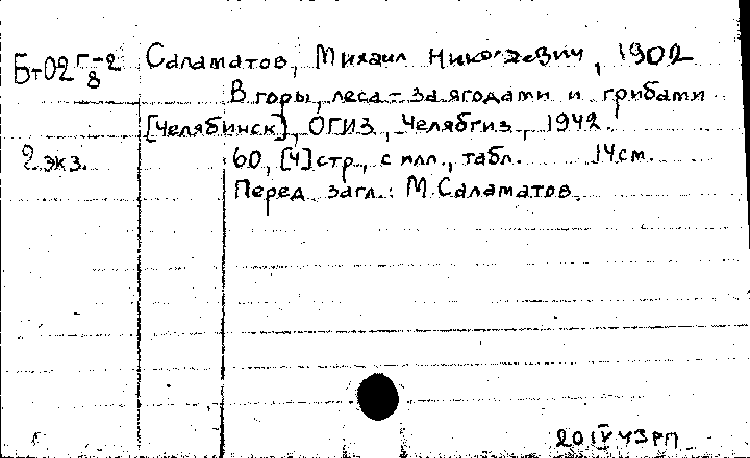 Бт02 Г-2/8 Саламатов, Михаил Николаевич, 1902
В горы, леса - за ягодами и грибами
[Челябинск], ОГИЗ, Челябгиз, 1942.
2 экз. 60, [4] стр., с илл., табл. 14 см.
Перед загл.: М. Саламатов.
20 IV 43 РП